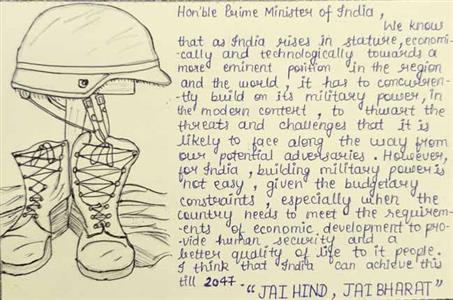 Hon'ble Prime Minister of India,
We know
that as India rises in stature, economi-
-cally and technologically towards a
more eminent position in the region
and the world, it has to concurren-
-tly build on its military power, in
the modern context, to thwart the
threats and challenges that it is
likely to face along the way from
our potential adversaries. However,
for India, building military power is
not easy, given the budgetary
constraints, especially when the
country needs to meet the requirem-
-ents of economic development to pro-
-vide human security and a
better quality of life to it people.
I think that India can achieve this
till 2047.
"JAI HIND, JAI BHARAT"